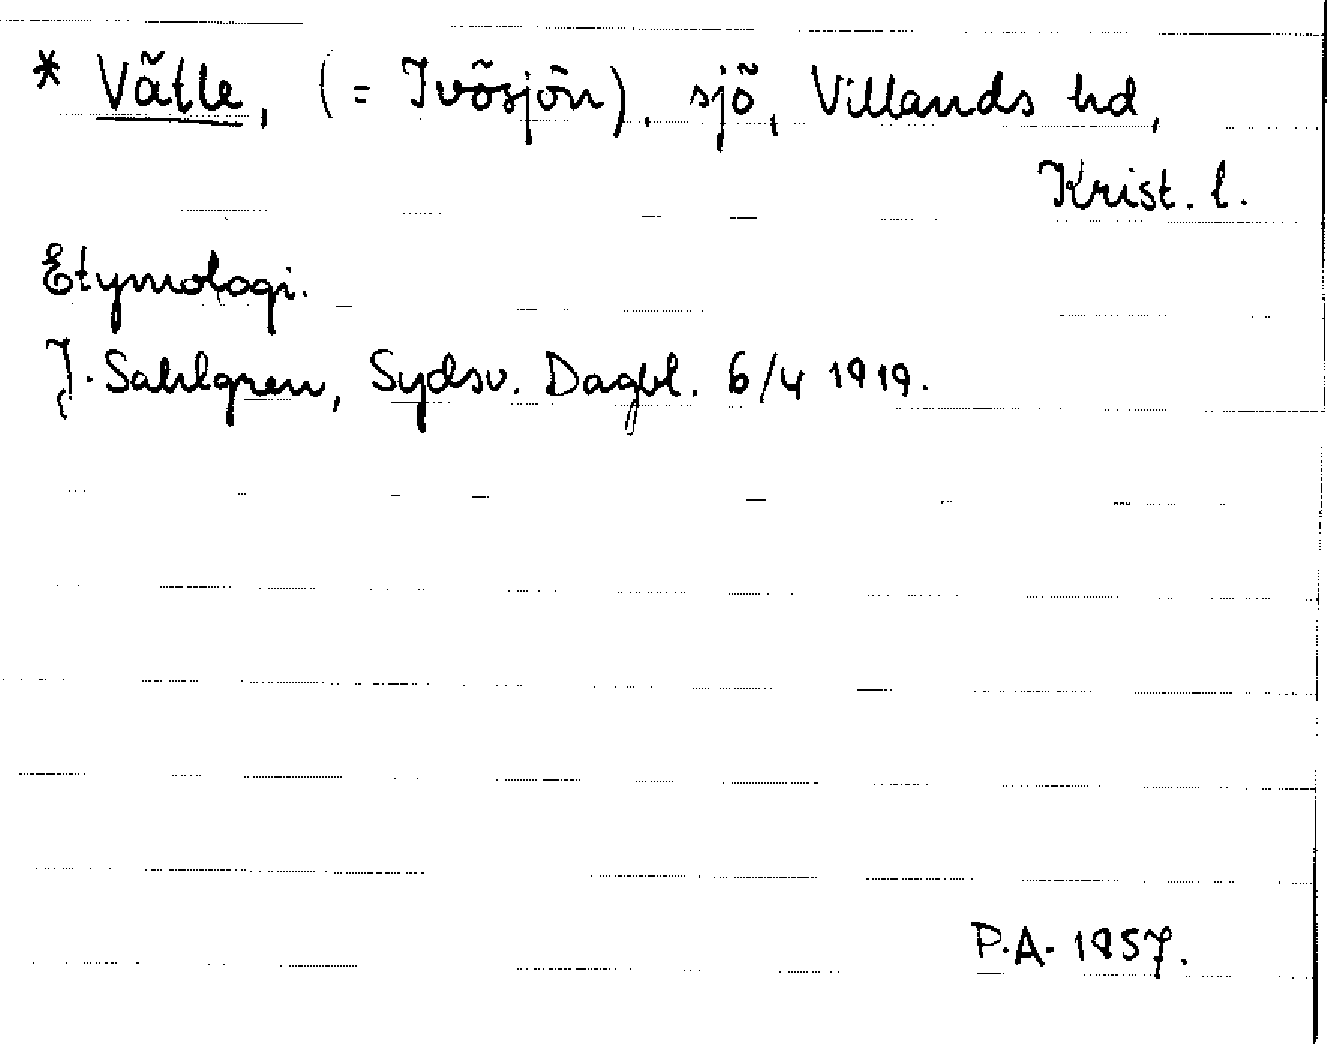 * Vätle, (= Ivösjön), sjö, Villands hd,
Krist. l.
Etymologi.
J. Sahlgren, Sydsv. Dagbl. 6/4 1919.
P.A. 1957.